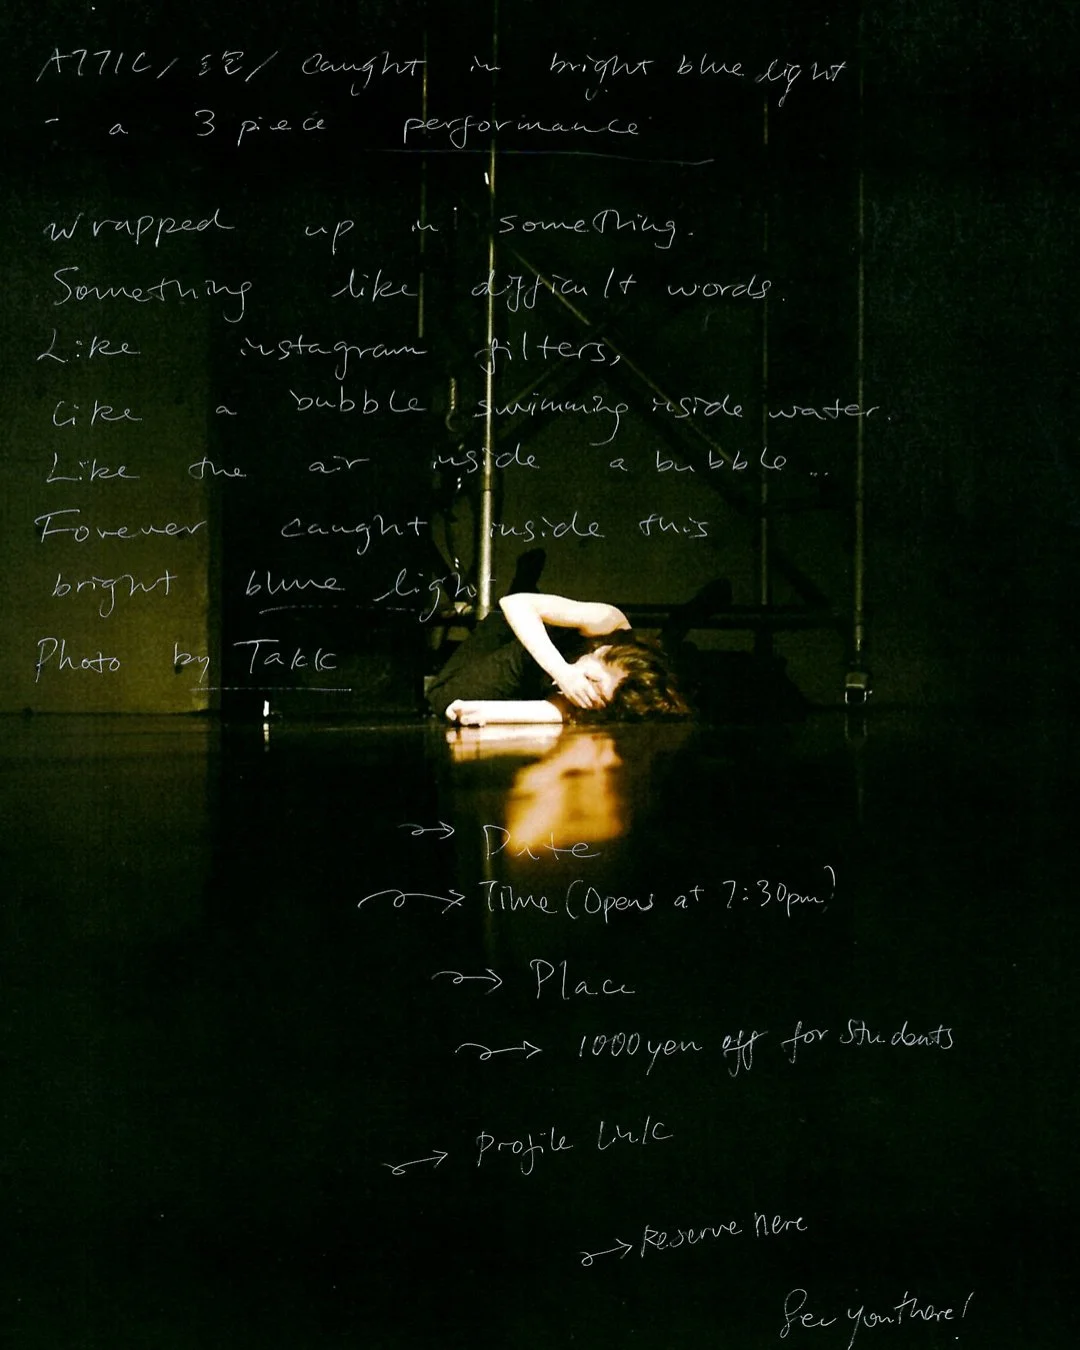 ATTIC / / caught in bright blue light
- a 3 piece performance
wrapped up in something.
Something like difficult words.
Like instagram filters,
Like a bubble swimming inside water.
Like the air inside a bubble...
Forever caught inside this
bright blue light
Photo by Takk
Date
Time (Opens at 7:30pm)
Place
1000yen off for students
Profile Link
Reserve here
See you there!